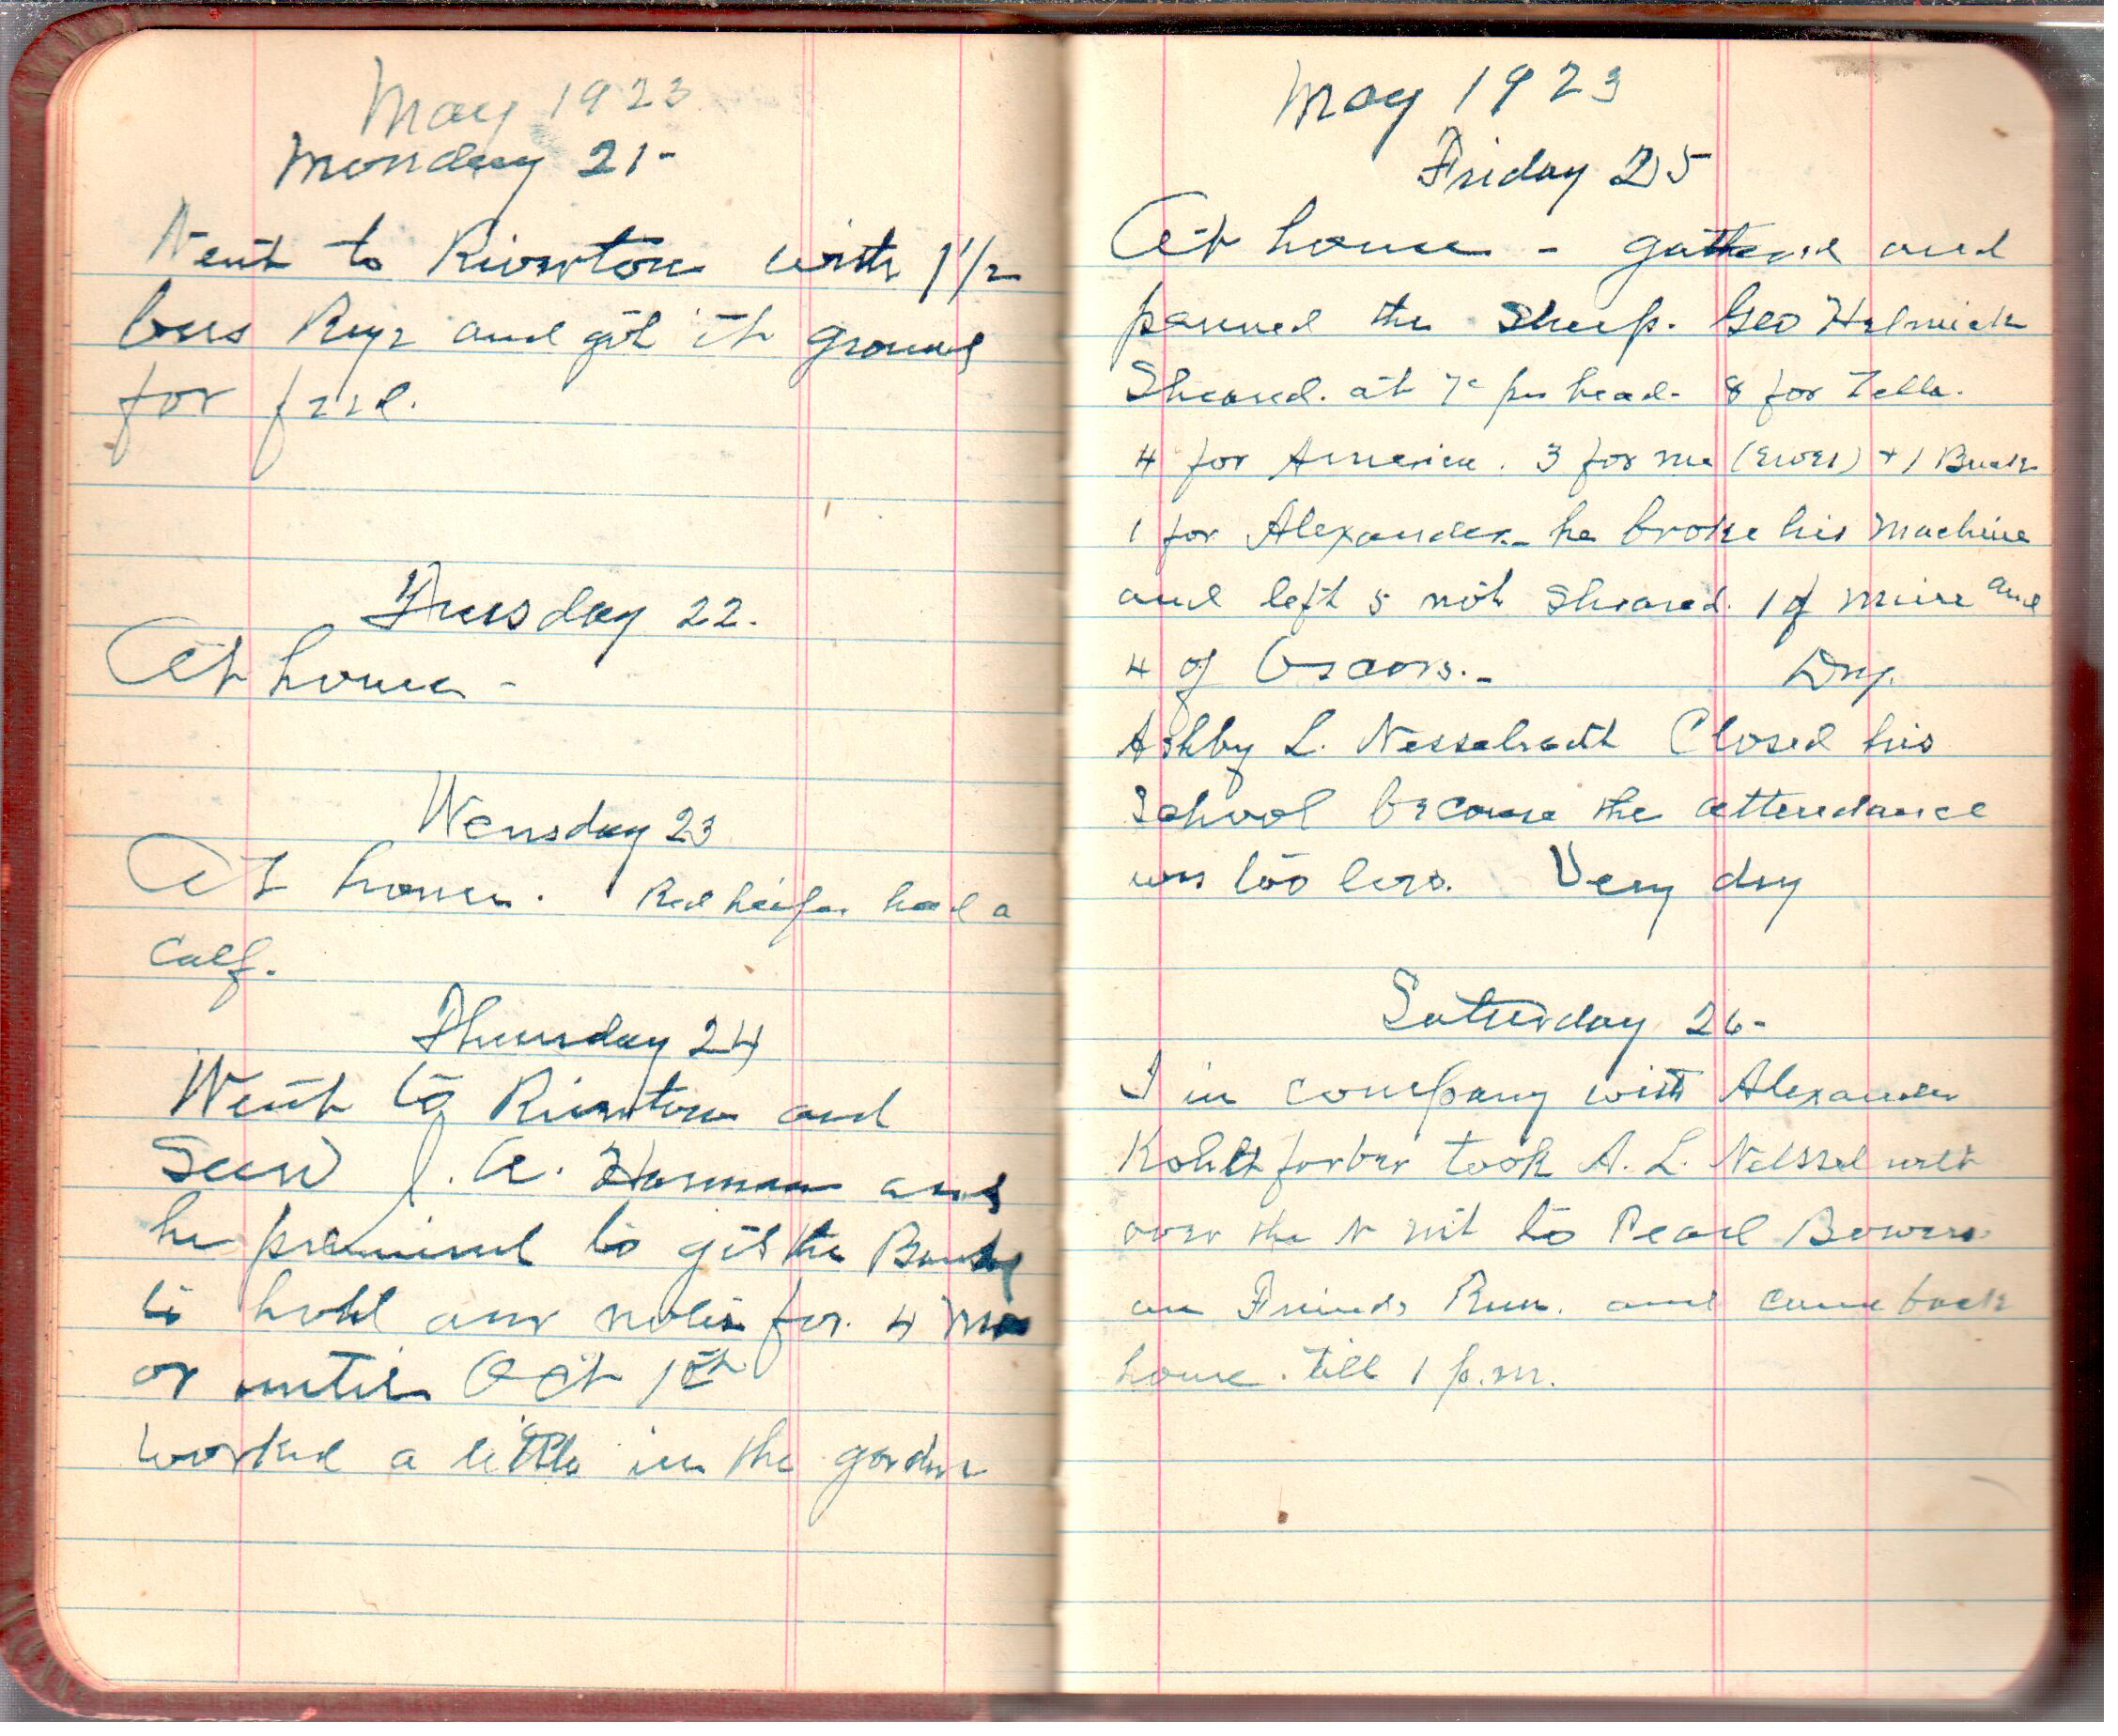 May 1923
Monday 21-
Went to Riverton with 1 1/2
bus Rye and got it ground
for feed.
Tuesday 22.
At home -
Wensday 23
At home. Red heifer had a
Calf.
Thursday 24
Went to Riverton and
Seen J. A. Harman and
he promised to get the Bank
to hold our notes for 4 Mo
or until Oct 1st
worked a little in the garden
May 1923
Friday 25
At home - gathered and
penned the Sheep. Geo Helmick
Sheared. at 7c per head- 8 for Zella.
4 for America. 3 for me (Ewes) + 1 Buck
1 for Alexander- he broke his Machine
and left 5 not Sheared. 1 of mine and
4 of Oscars.- Dry.
Ashby L. Nesselrodt Closed his
School because the attendance
was too less. Very dry
Saturday 26-
I in company with Alexander
took A. L.
over the N mt to Pearl Bowers
on Friends Run. and came back
home. till 1 p.m.